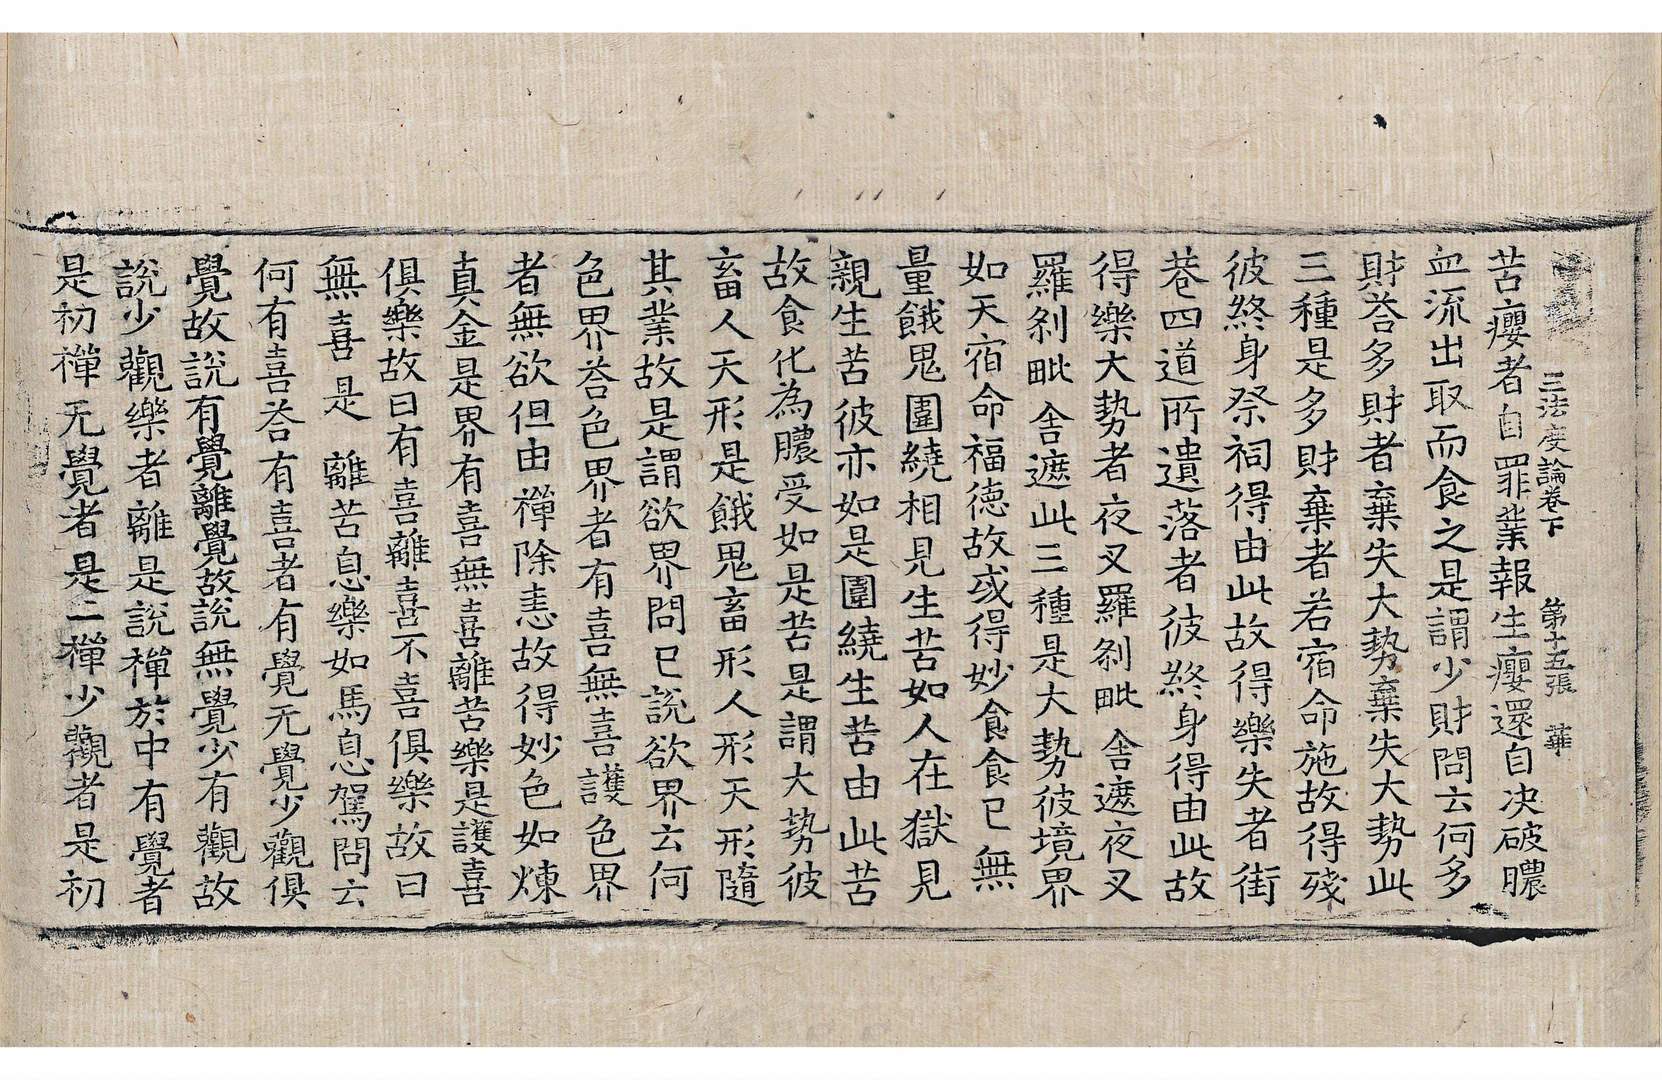 三法度論卷下　第十五張　華
苦癭者自罪業報生癭還自决破膿
血流出取而食之是謂少財問云何多
財荅多財者棄失大勢棄失大勢此
三種是多財棄者若宿命施故得殘
彼終身祭祠得由此故得樂失者街
巷四道所遺落者彼終身得由此故
得樂大勢者夜叉羅刹毗舍遮夜叉
羅刹毗舍遮此三種是大勢彼境界
如天宿命福德故或得妙食食已無
量餓鬼圍繞相見生苦如人在獄見
親生苦彼亦如是圍繞生苦由此苦
故食化為膿受如是苦是謂大勢彼
畜人天形是餓鬼畜形人形天形隨
其業故是謂欲界問已說欲界云何
色界荅色界者有喜無喜護色界
者無欲但由禪除恚故得妙色如煉
真金是界有喜無喜離苦樂是護喜
俱樂故曰有喜離喜不喜俱樂故曰
無喜是離苦息樂如馬息駕問云
何有喜荅有喜者有覺无覺少觀俱
覺故說有覺離覺故說無覺少有觀故
說少觀樂者離是說禪於中有覺者
是初禪无覺者是二禪少觀者是初